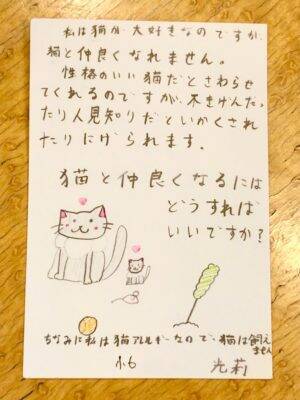 私は猫が大好きなのですが、
猫と仲良くなれません。
性格のいい猫だとさわらせ
てくれるのですが、不きげんだっ
たり人見知りだといかくされ
たりにげられます。
猫と仲良くなるには
どうすれば
いいですか?
ちなみに私は猫アレルギーなので、猫は飼え
ません
小6
光莉